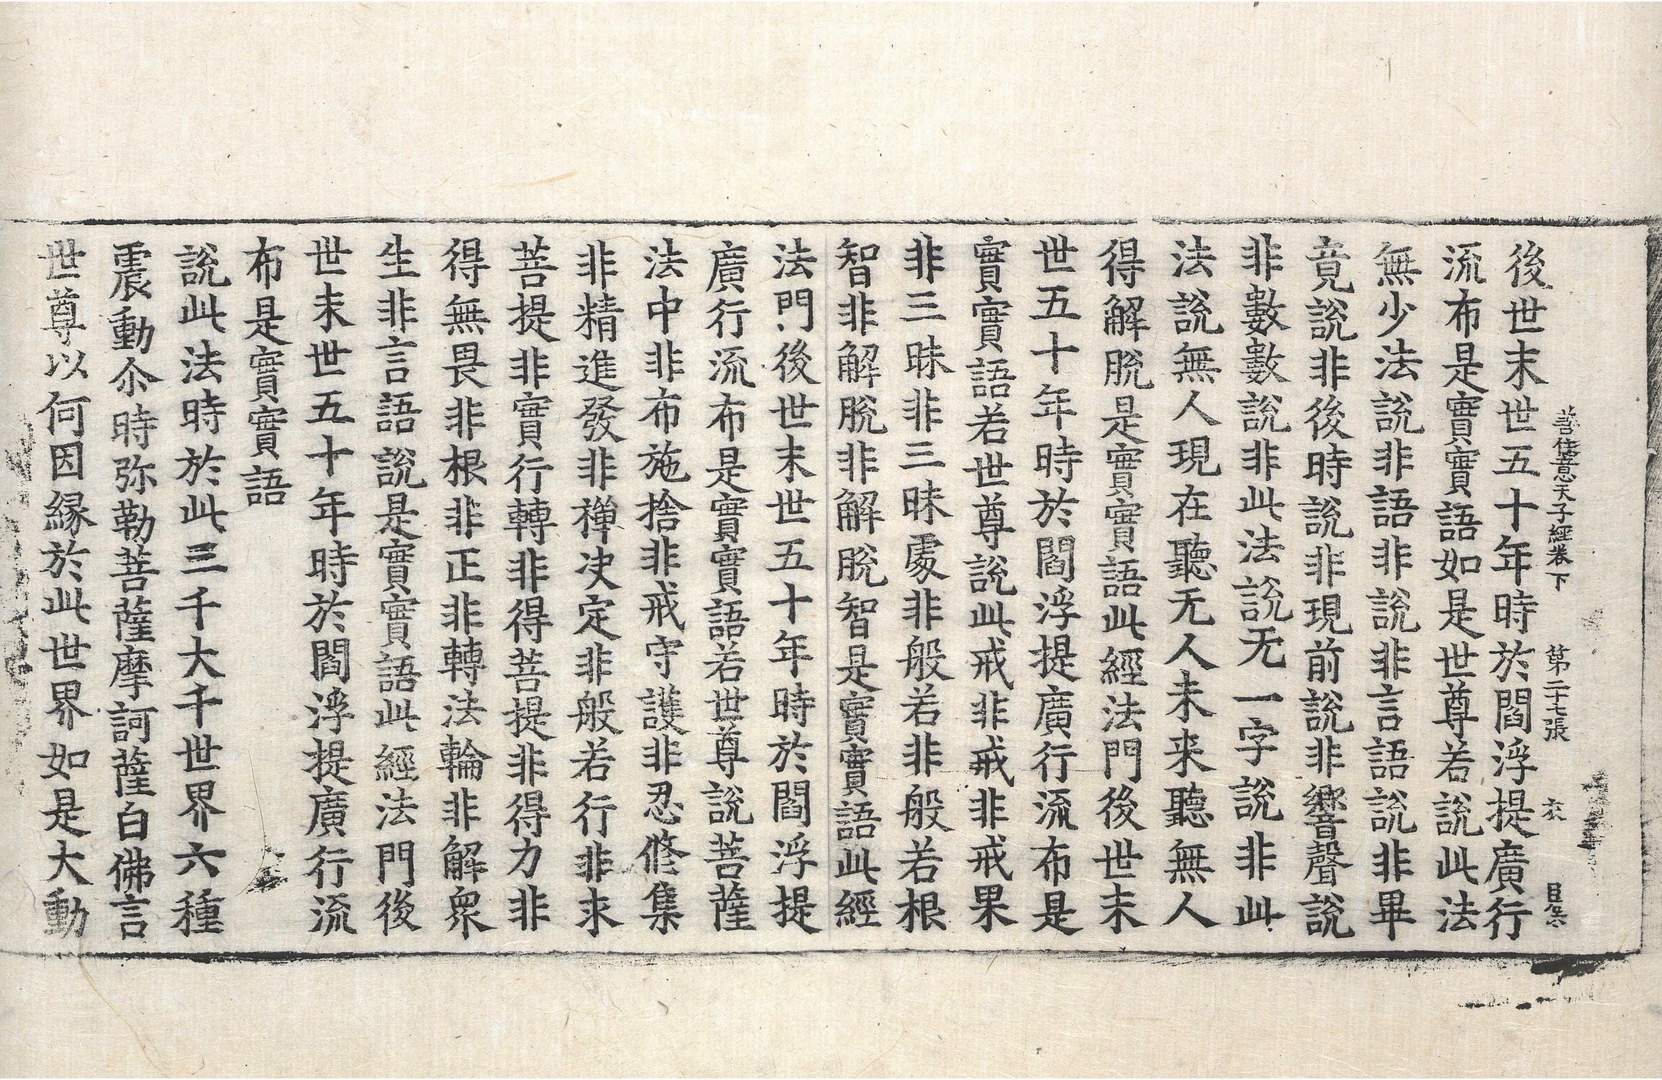 善住意天子經卷下 第二十七張 衣
後世末世五十年時於閻浮提廣行
流布是實實語如是世尊若說此法
無少法說非語非說非言語說非畢
竟說非後時說非現前說非響聲說
非數數說非此法說无一字說非此
法說無人現在聽无人未来聽無人
得解脫是實實語此經法門後世末
世五十年時於閻浮提廣行流布是
實實語若世尊說此戒非戒非戒果
非三昧非三昧處非般若非般若根
智非解脫非解脫智是實實語此經
法門後世末世五十年時於閻浮提
廣行流布是實實語若世尊說菩薩
法中非布施捨非戒守護非忍修集
非精進發非禪决定非般若行非求
菩提非實行轉非得菩提非得力非
得無畏非根非正非轉法輪非解衆
生非言語說是實實語此經法門後
世末世五十年時於閻浮提廣行流
布是實實語
說此法時於此三千大千世界六種
震動尒時弥勒菩薩摩訶薩白佛言
世尊以何因緣於此世界如是大動